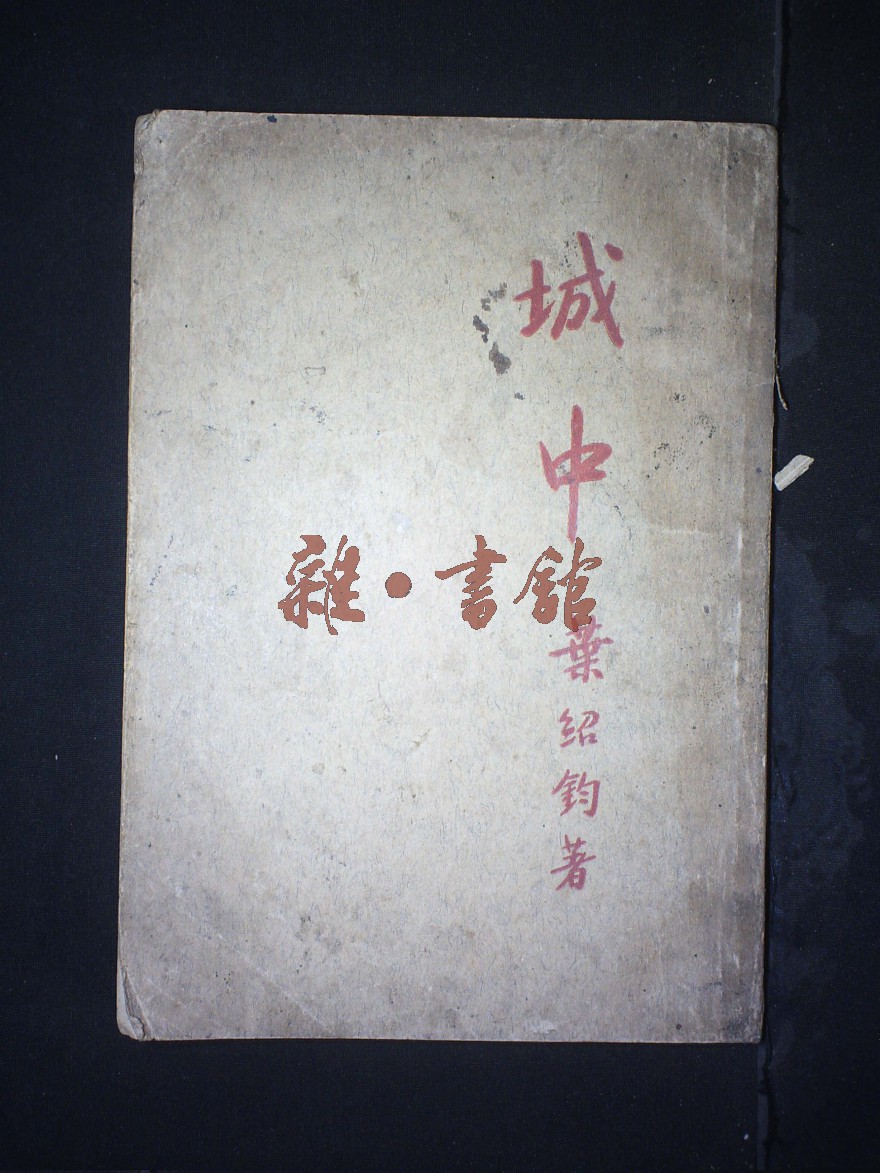 城中
葉紹鈞著
雜·書館